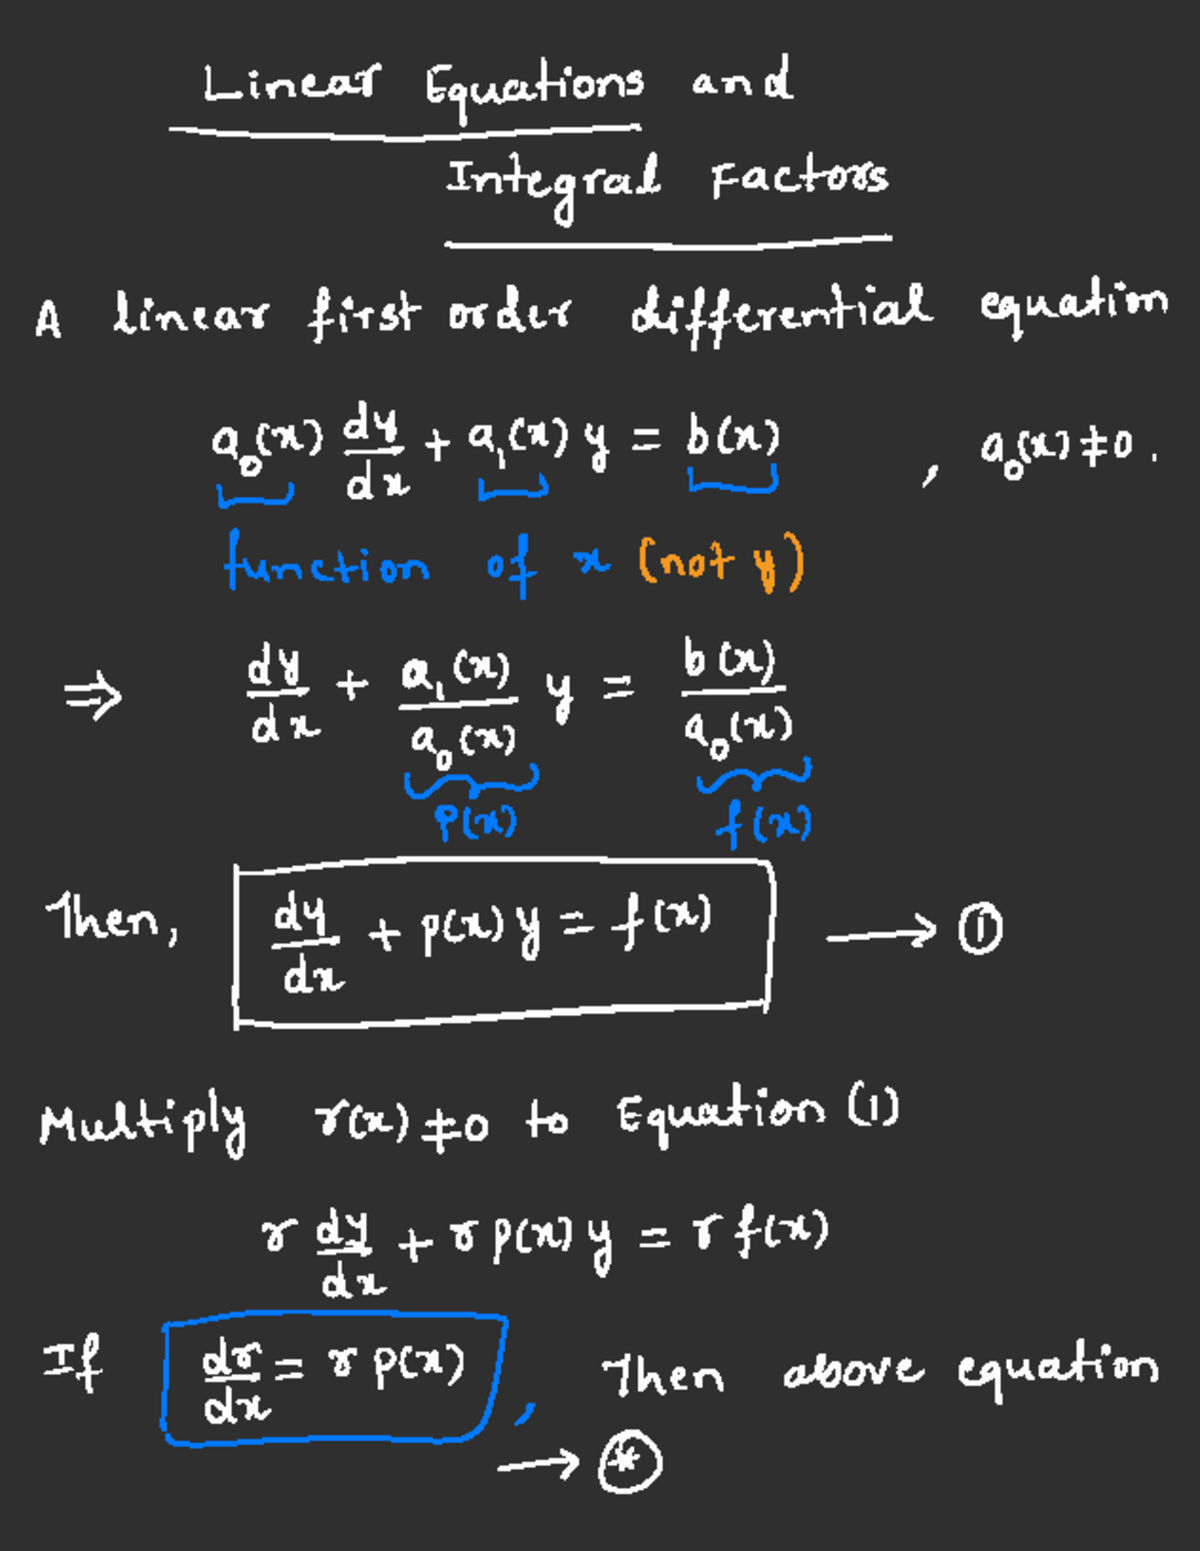 Linear Equations and
Integral Factors
A linear first order differential equation
a₀(x) dy/dx + a₁(x) y = b(x) , a₀(x) ≠ 0.
function of x (not y)
⇒ dy/dx + a₁(x)/a₀(x) y = b(x)/a₀(x)
P(x) f(x)
Then, dy/dx + p(x) y = f(x) → ①
Multiply r(x) ≠ 0 to Equation (1)
r dy/dx + r p(x) y = r f(x)
If dr/dx = r p(x) , Then above equation
→ ⊛